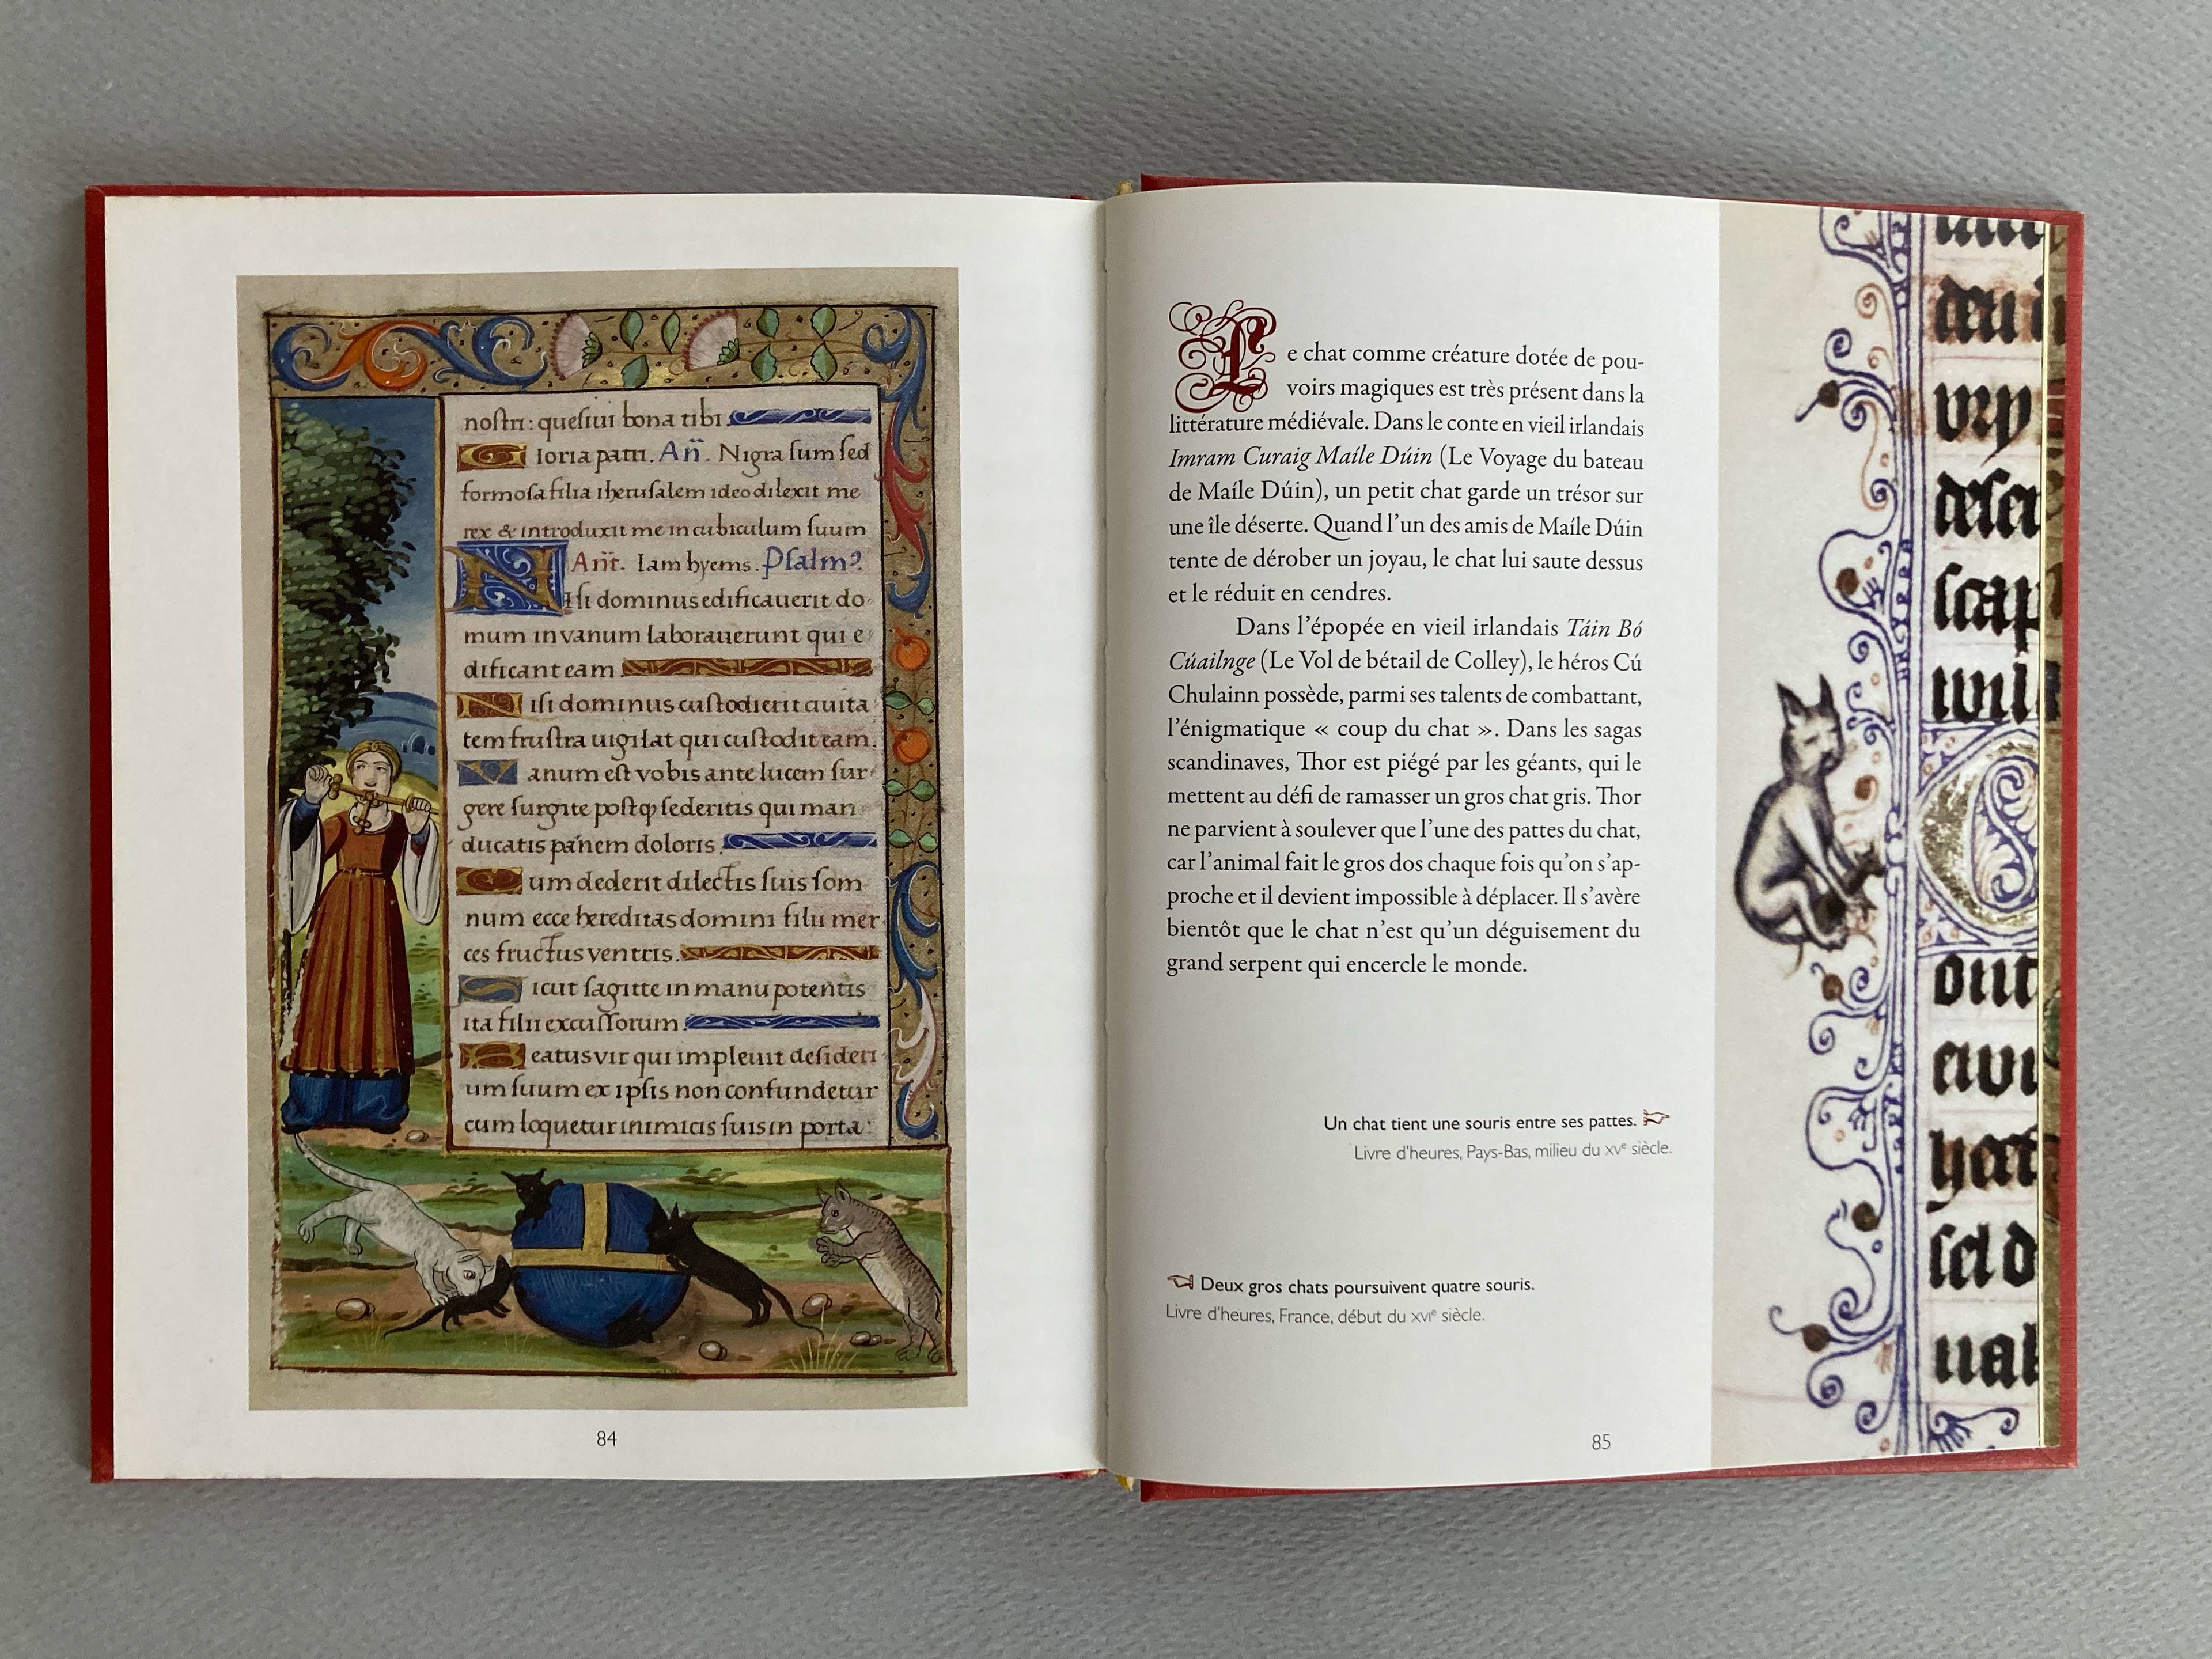 nostri: quesiui bona tibi.
Gloria patri. An̄. Nigra sum sed
formosa filia iherusalem ideo dilexit me
rex & introduxit me in cubiculum suum
Ant̄. Iam hyems. Psalm9.
NIsi dominus edificauerit do
mum in vanum laborauerunt qui e
dificant eam.
Nisi dominus custodierit ciuita
tem frustra uigilat qui custodit eam.
Vanum est vobis ante lucem sur
gere surgite postq̃ sederitis qui man
ducatis panem doloris.
Cum dederit dilectis suis som
num ecce hereditas domini filii mer
ces fructus ventris.
Sicut sagitte in manu potentis
ita filii excussorum.
Beatus vir qui impleuit desideri
um suum ex ipsis non confundetur
cum loquetur inimicis suis in porta:
84
Le chat comme créature dotée de pou-
voirs magiques est très présent dans la
littérature médiévale. Dans le conte en vieil irlandais
Imram Curaig Maíle Dúin (Le Voyage du bateau
de Maíle Dúin), un petit chat garde un trésor sur
une île déserte. Quand l'un des amis de Maíle Dúin
tente de dérober un joyau, le chat lui saute dessus
et le réduit en cendres.
Dans l'épopée en vieil irlandais Táin Bó
Cúailnge (Le Vol de bétail de Colley), le héros Cú
Chulainn possède, parmi ses talents de combattant,
l'énigmatique « coup du chat ». Dans les sagas
scandinaves, Thor est piégé par les géants, qui le
mettent au défi de ramasser un gros chat gris. Thor
ne parvient à soulever que l'une des pattes du chat,
car l'animal fait le gros dos chaque fois qu'on s'ap-
proche et il devient impossible à déplacer. Il s'avère
bientôt que le chat n'est qu'un déguisement du
grand serpent qui encercle le monde.
Un chat tient une souris entre ses pattes.
Livre d'heures, Pays-Bas, milieu du XVe siècle.
Deux gros chats poursuivent quatre souris.
Livre d'heures, France, début du XVIe siècle.
85